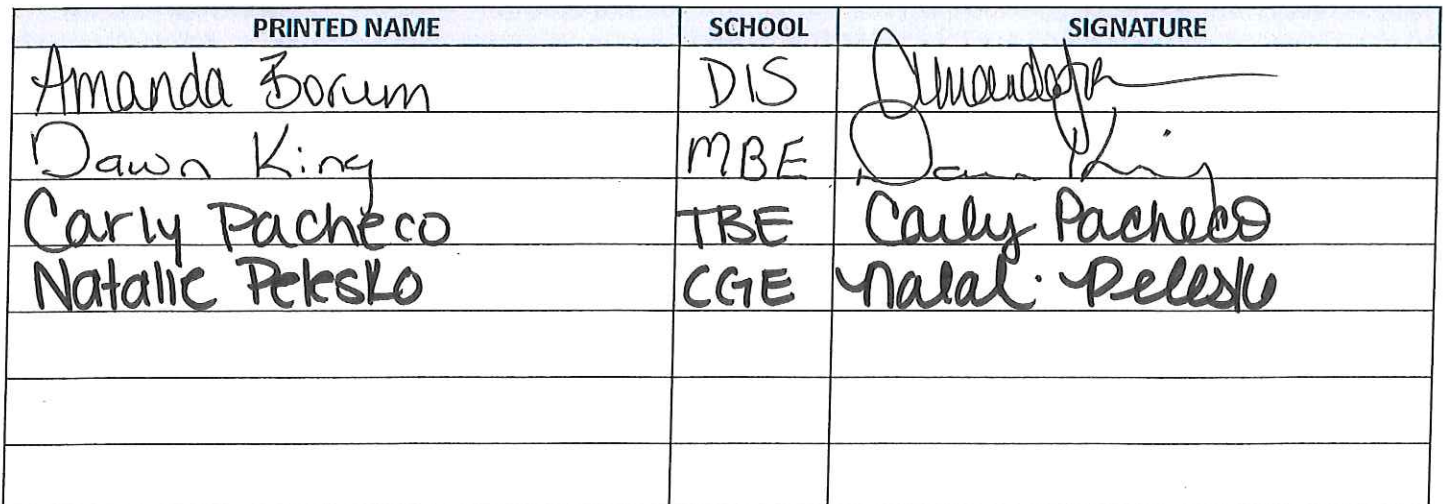 PRINTED NAME SCHOOL SIGNATURE
Amanda Borum DIS
Dawn King MBE Dawn King
Carly Pacheco TBE Carly Pacheco
Natalie Pelesko CGE Natal. Pelesko